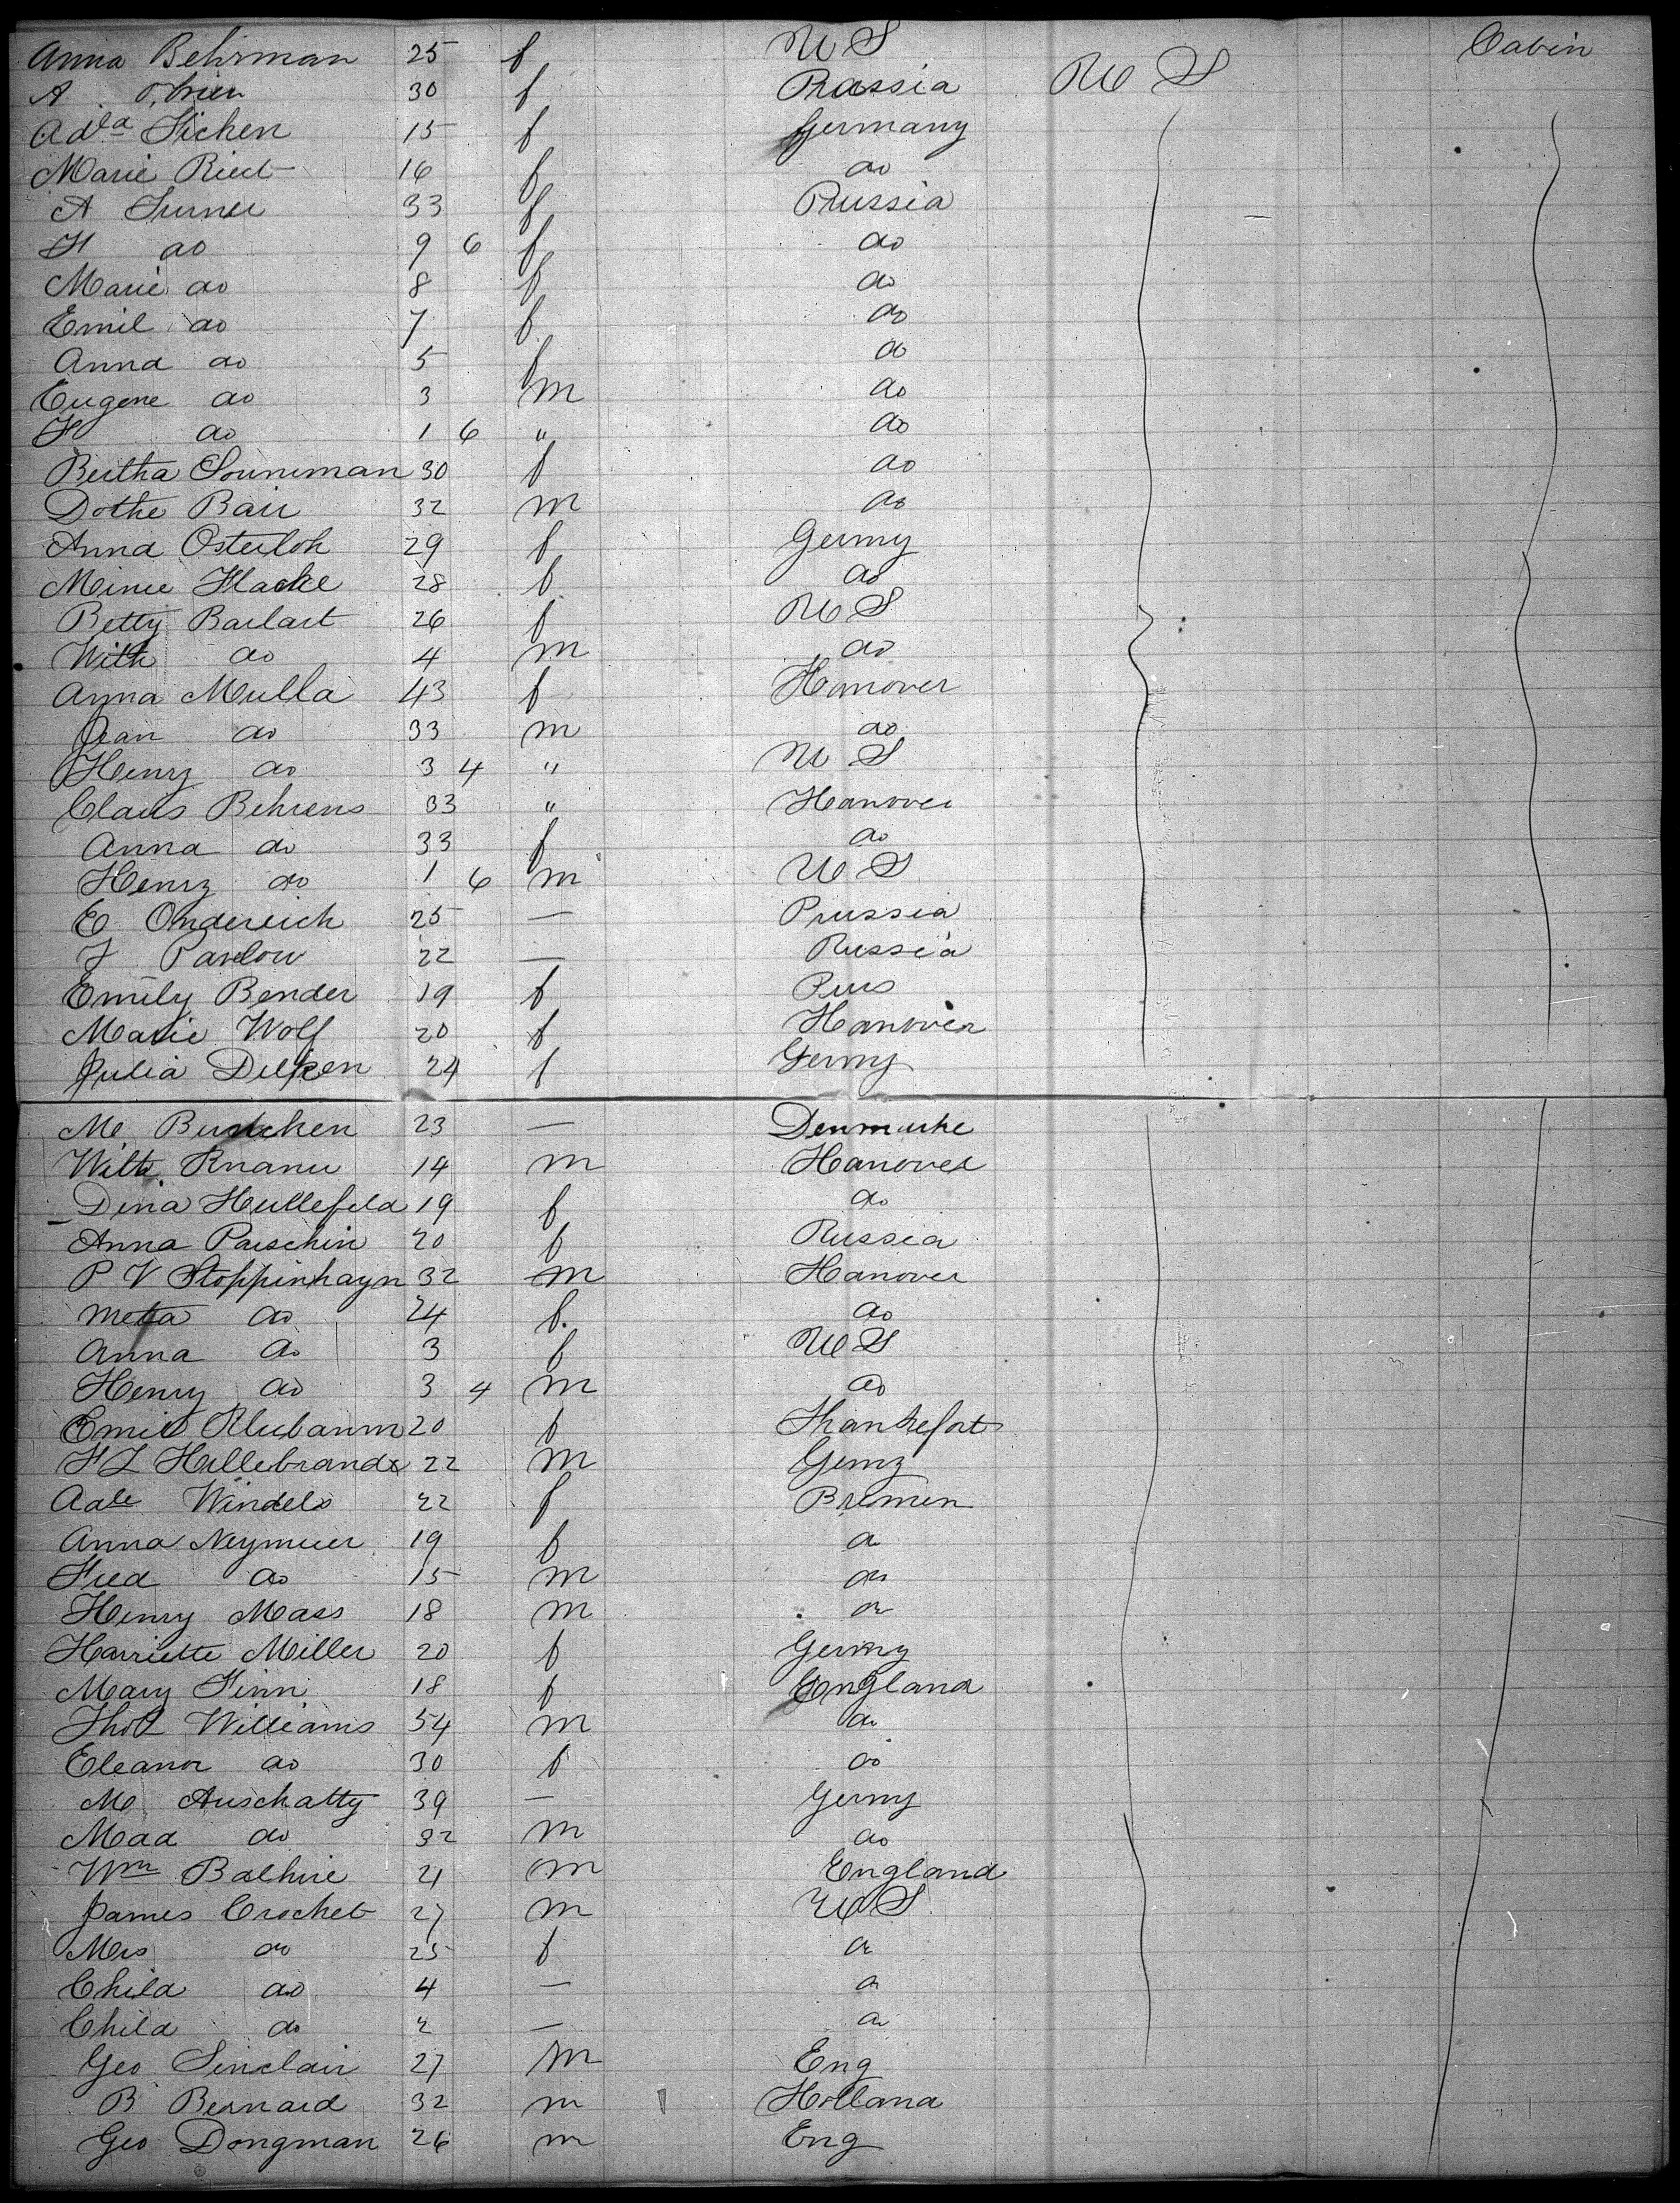 Anna Behrman 25 f U S Cabin
A O'brien 30 f Prussia U S
Ada Ficken 15 f Germany
Marie Riect 16 f do
A Turner 33 f Prussia
H do 9 6 f do
Marie do 8 f do
Emil do 7 f do
Anna do 5 f do
Eugene do 3 m do
F do 1 6 " do
Bertha Sonneman 30 f do
Dothe Bair 32 m do
Anna Osterloh 29 f Germy
Minee Hacke 28 f do
Betty Barlart 26 f U S
Wilh do 4 m do
Anna Mulla 43 f Hanover
Jean do 33 m do
Henry do 3 4 " U S
Claus Behrens 33 " Hanover
Anna do 33 f do
Henry do 1 6 m U S
E Ondereich 25 — Prussia
F Pavelow 22 — Russia
Emily Bender 19 f Prus
Marie Wolf 20 f Hanover
Julia Delken 24 f Germy
M 23 — Denmarke
Wilh 14 m Hanover
Dina Hullefeld 19 f do
Anna Parschin 20 f Russia
P V Stoppinhayn 32 m Hanover
Metta do 24 f. do
Anna do 3 f U S
Henry do 3 4 m do
Emil Klubanm 20 f
F L Hillebrands 22 m Germy
Aale Windels 22 f Bremen
Anna Neymeier 19 f do
Fred do 15 m do
Henry Mass 18 m do
Harriette Miller 20 f Germy
Mary Finn 18 f England
Thos Williams 54 m do
Eleanor do 30 f do
M Auschatty 39 — Germy
Maa do 32 m do
Wm Balhire 21 m England
James Crochet 27 m U S
Mrs do 25 f do
Child do 4 — do
Child do 2 — do
Geo Sinclair 27 m Eng
B Bernard 32 m Holland
Geo Dongman 26 m Eng